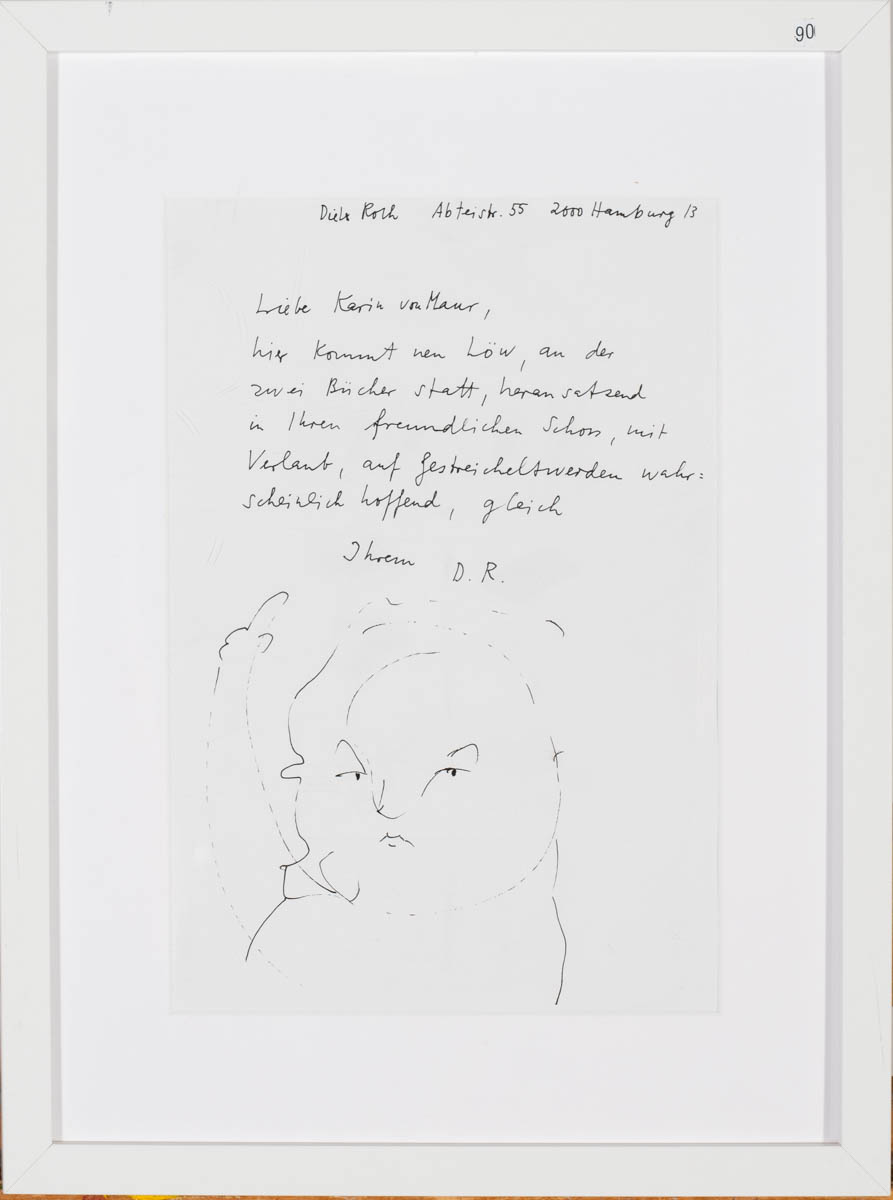 90
Dieter Roth Abteistr. 55 2000 Hamburg 13
Liebe Karin von Maur,
hier kommt nen Löw, an der
zwei Bücher statt, heransatzend
in Ihren freundlichen Schoss, mit
Verlaub, auf Gestreicheltwerden wahr=
scheinlich hoffend, gleich
Ihrem D. R.